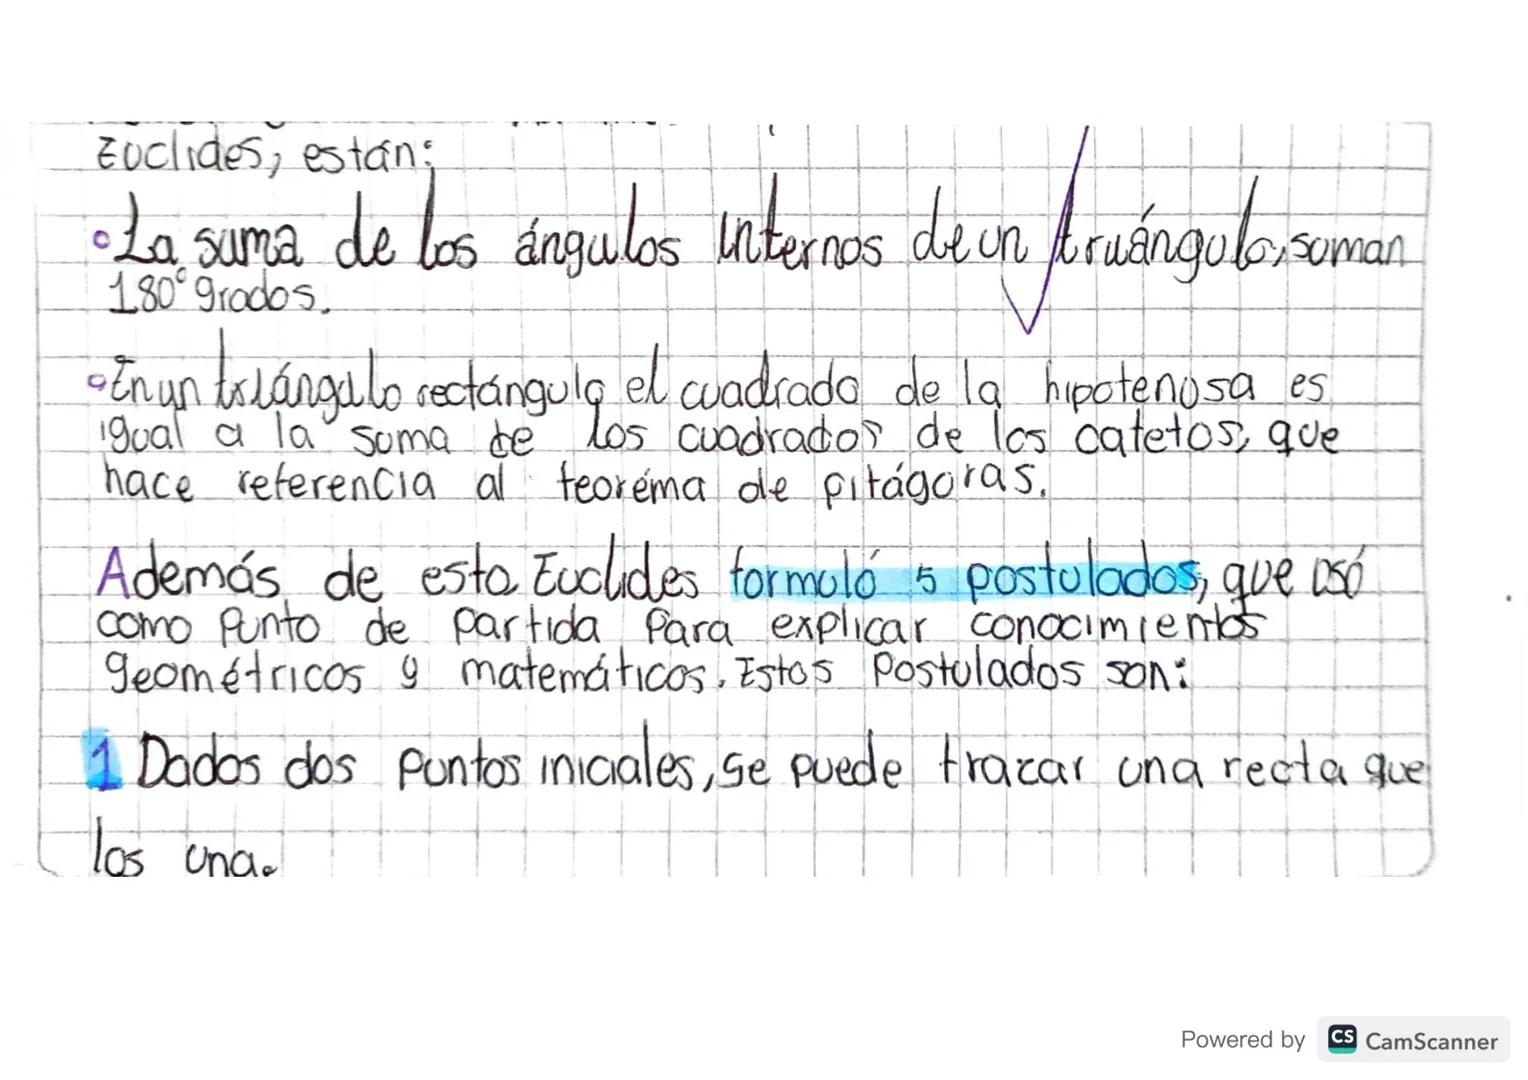 Euclides, están:
La suma de los ángulos internos de un truángulo, suman
180° grados.
En un triángulo rectángulo el cuadrado de la hipotenusa es
igual a la suma de los cuadrados de los catetos, que
hace referencia al teoréma de pitágoras.
Además de esto Euclides formuló 5 postulados, que usó
como punto de partida para explicar conocimientos
geométricos y matemáticos. Estos postulados son:
1 Dados dos puntos iniciales, se puede trazar una recta que
los una.
Powered by CS CamScanner